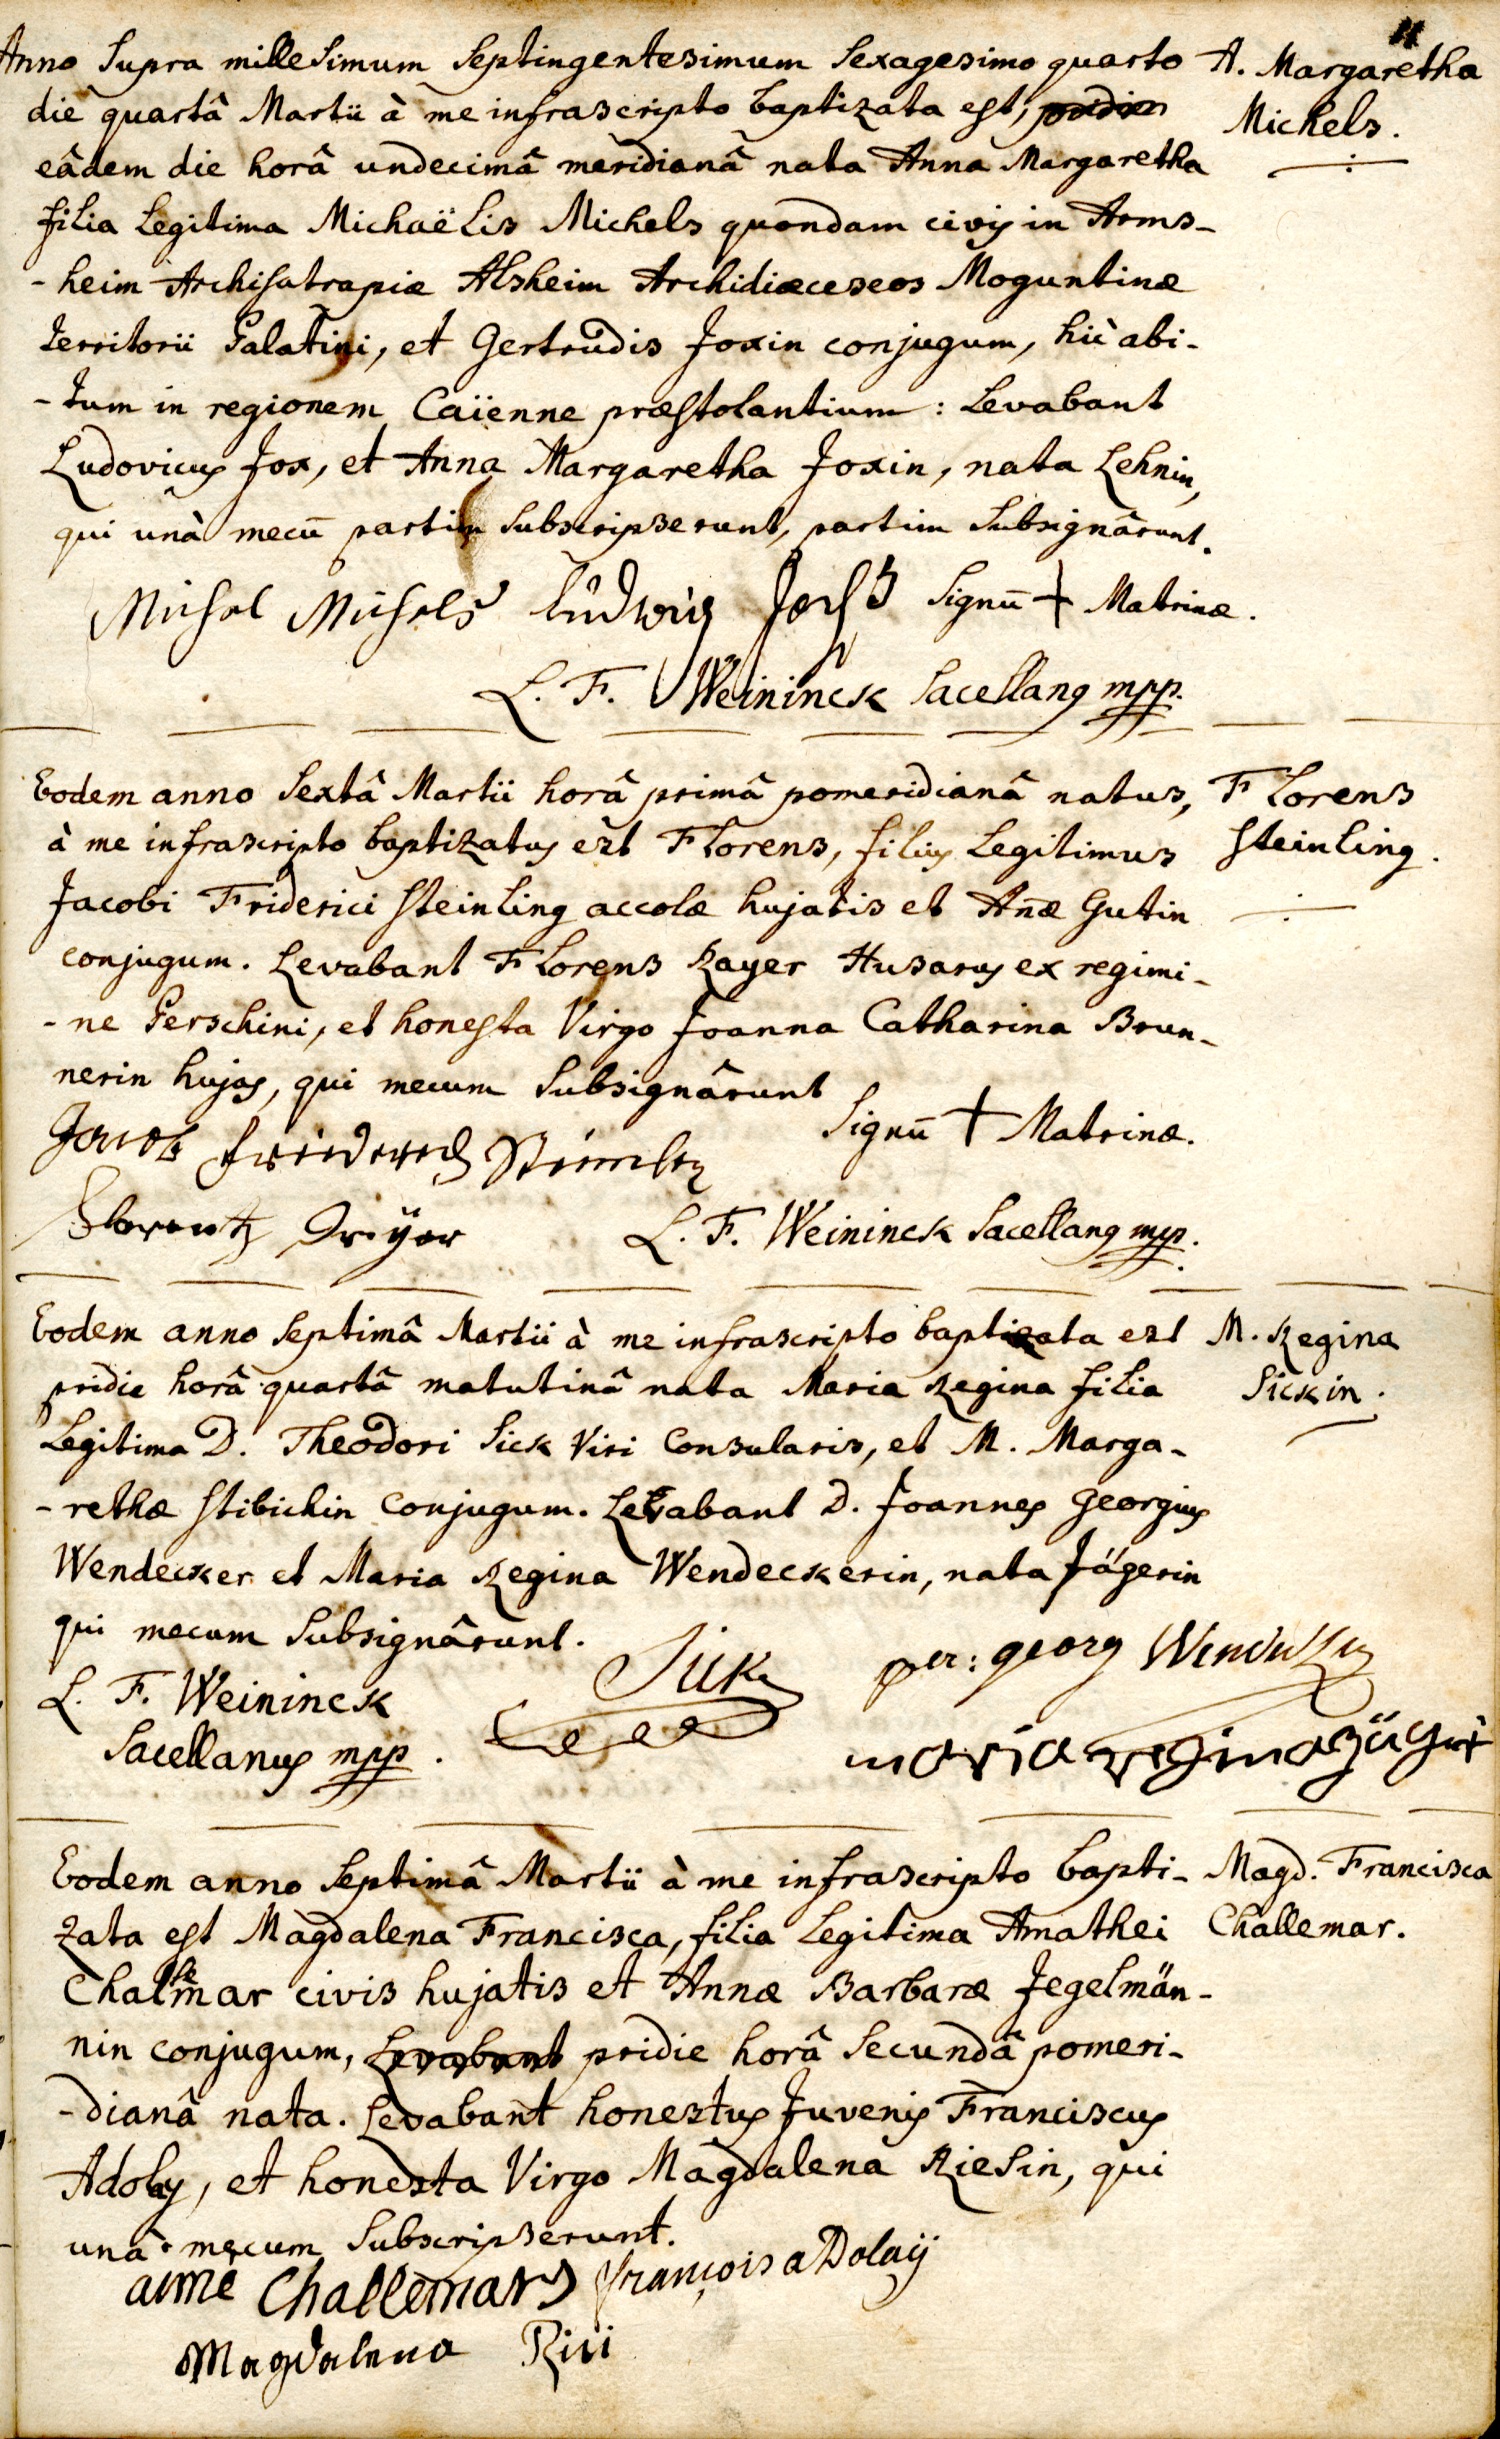 11
Anno supra millesimum septingentesimum sexagesimo quarto
die quartâ Martii à me infrascripto baptizata est, pridie
eâdem die horâ undecimâ meridianâ nata Anna Margaretha
filia legitima Michaëlis Michels quondam civis in Arms-
-heim Archisatrapiæ Alsheim Archidiœceseos Moguntinæ
territorii Palatini, et Gertrudis Joxin conjugum, hic abi-
-tum in regionem Caïenne præstolantium: Levabant
Ludovicus Jox, et Anna Margaretha Joxin, nata Lehnin,
qui unà mecū partim subscripserunt, partim subsignârunt.
A. Margaretha
Michels.
Michel Michels Ludwig Signū + Matrinæ.
L. F. Weininck Sacellanus mpp.
Eodem anno sextâ Martii horâ primâ pomeridianâ natus,
à me infrascripto baptizatus est Florens, filius legitimus
Jacobi Friderici Steinling accolæ hujatis et Añæ Gutin
conjugum. Levabant Florens Rayer Husarus ex regimi-
-ne Perschini, et honesta Virgo Joanna Catharina Brun-
nerin hujas, qui mecum subsignârunt
Florens
Steinling.
Signū + Matrinæ.
Jacob
L. F. Weininck Sacellanus mpp.
Eodem anno septimâ Martii à me infrascripto baptizata est
pridie horâ quartâ matutinâ nata Maria Regina filia
legitima D. Theodori Sick Viri Consularis, et M. Marga-
-rethæ Stibichin conjugum. Levabant D. Joannes Georgius
Wendecker et Maria Regina Wendeckerin, nata Jägerin
qui mecum subsignârunt.
M. Regina
Sickin.
L. F. Weininck
Sacellanus mpp.
Sick
georg
maria regina
Eodem anno septimâ Martii à me infrascripto bapti-
zata est Magdalena Francisca, filia legitima Amathei
Chalemar civis hujatis et Annæ Barbaræ Jegelmän-
nin conjugum, Levabant pridie horâ secundâ pomeri-
-dianâ nata. Levabant honestus Juvenis Franciscus
Adolay, et honesta Virgo Magdalena Riesin, qui
unâ mecum subscripserunt.
Magd. Francisca
Challemar.
aimé Challemard françois aDolaÿ
Magdalena